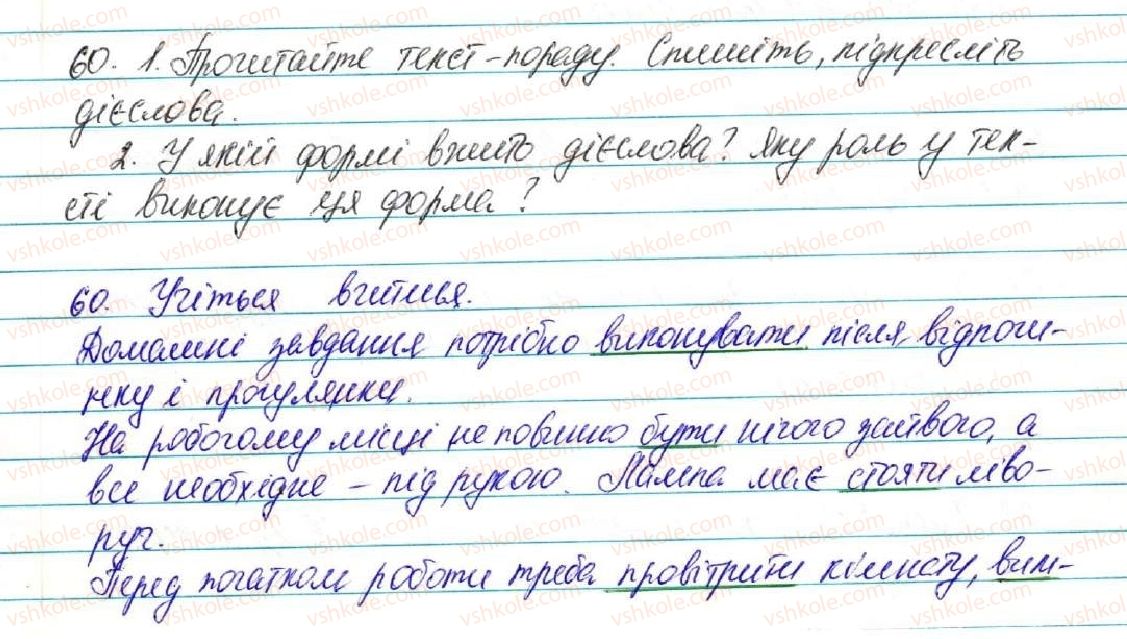 60. 1. Прочитайте текст-пораду. Спишіть, підкресліть
дієслова.
2. У якій формі вжито дієслова? Яку роль у тек-
сті виконує ця форма?
60. Учіться вчитися.
Домашні завдання потрібно виконувати після відпочи-
нку і прогулянки.
На робочому місці не повинно бути нічого зайвого, а
все необхідне – під рукою. Лампа має стояти ліво-
руч.
Перед початком роботи треба провітрити кімнату, вим-